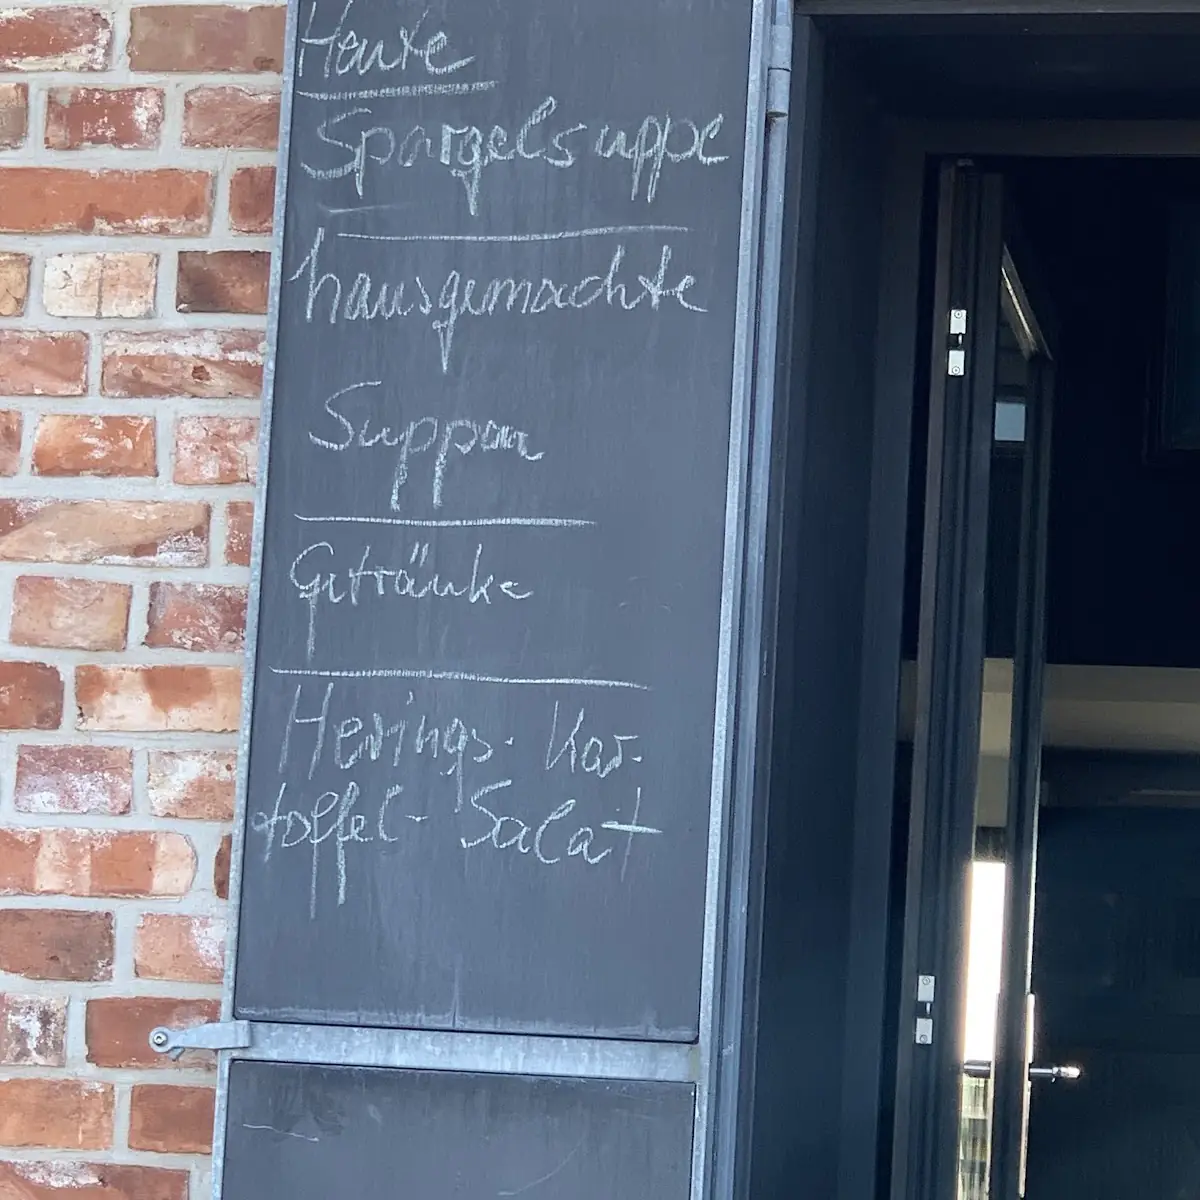 Heute
Spargelsuppe
hausgemachte
Suppen
Getränke
Herings- Kar-
toffel- Salat